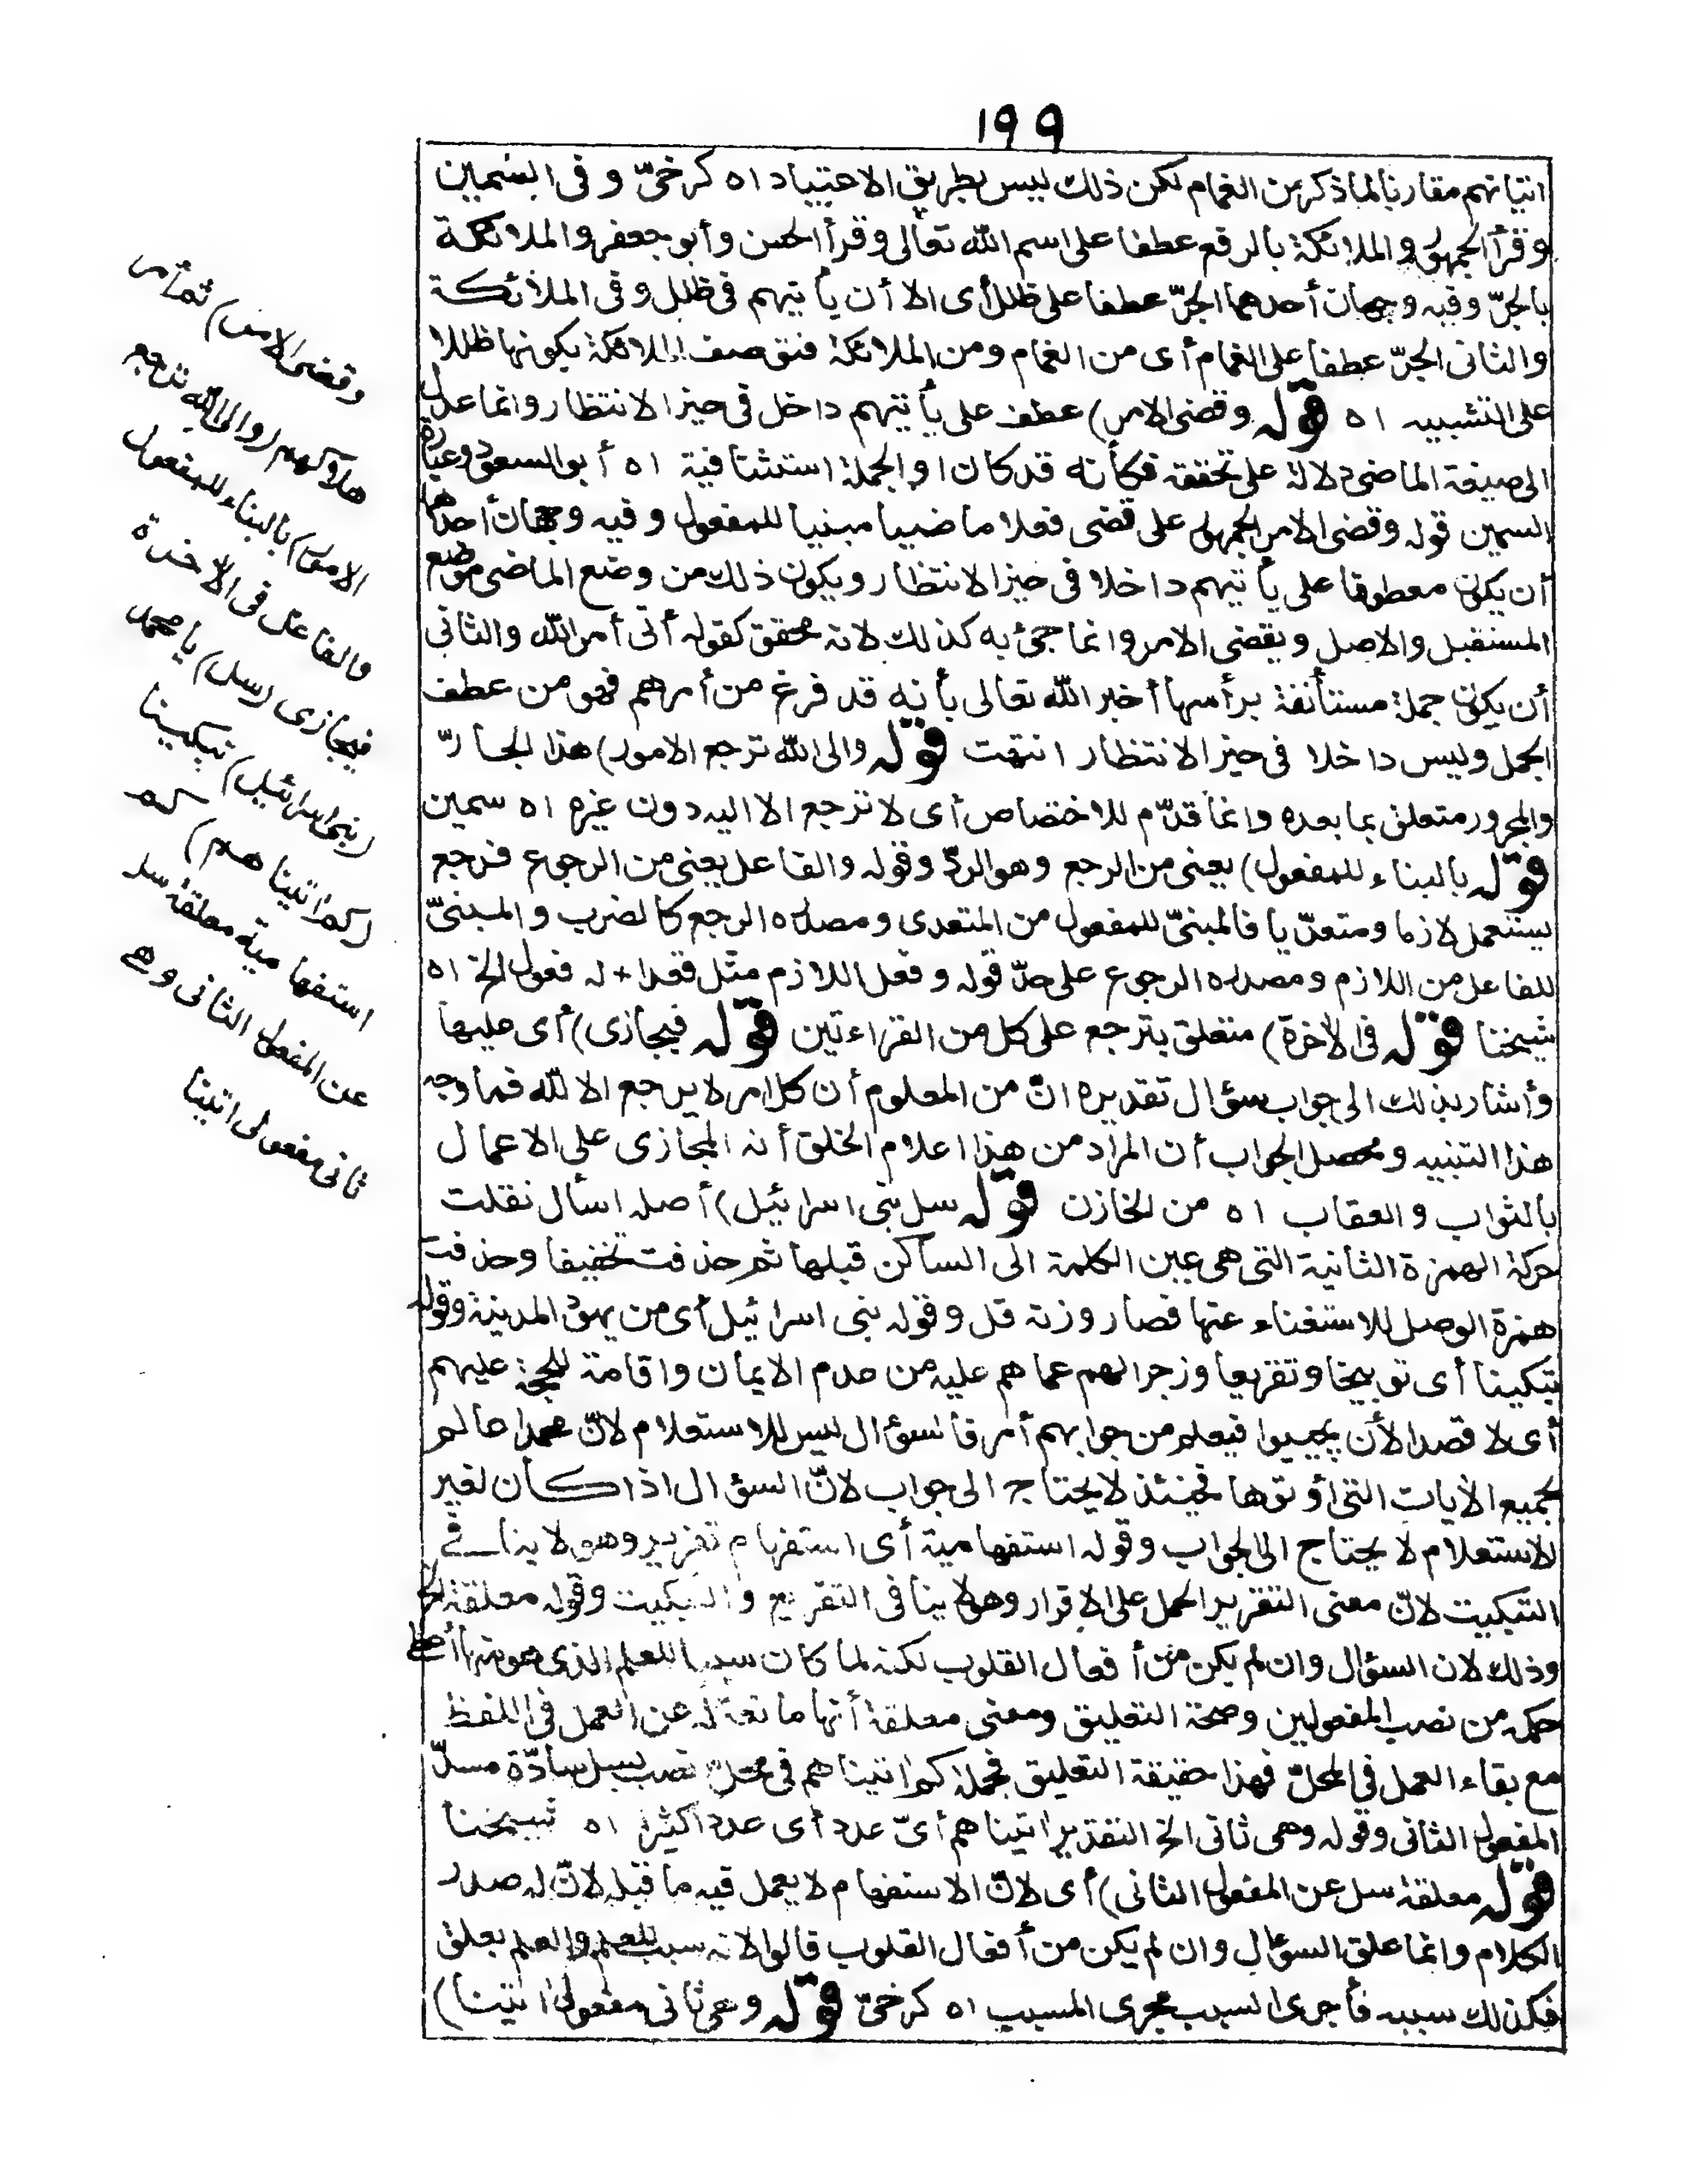 ١٩٩
اتيانهم مقارنا لما ذكر من الغمام لكن ذلك ليس بطريق الاعتياد اه كرخىّ وفى السمين
وقرأ الجمهور والملائكة بالرفع عطفا على اسم الله تعالى وقرأ الحسن وأبو جعفر والملائكة
بالجرّ وفيه وجهان أحدهما الجرّ عطفا على ظلل أى الا أن يأتيهم فى ظلل وفى الملائكة
والثانى الجرّ عطفا على الغمام أى من الغمام ومن الملائكة فتوصف الملائكة بكونها ظللا
على التشبيه اه قوله وقضى الامر) عطف على يأتيهم داخل فى حيز الانتظار وانما عدل
الى صيغة الماضى دلالة على تحققه فكأنه قد كان اوالجملة استئنافية اه أبو السعود وعبارة
السمين قوله وقضى الامر الجمهور على قضى فعلا ماضيا مبنيا للمفعول وفيه وجهان أحدهما
أن يكون معطوفا على يأتيهم داخلا فى حيز الانتظار ويكون ذلك من وضع الماضى موضع
المستقبل والاصل ويقضى الامر وانما جئ به كذلك لانه محقق كقوله أتى أمر الله والثانى
أن يكون جملة مستأنفة برأسها أخبر الله تعالى بأنه قد فرغ من أمرهم فهو من عطف
الجمل وليس داخلا فى حيز الانتظار انتهت قوله والى الله ترجع الامور) هذا الجارّ
والمجرور متعلق بما بعده وانما قدّم للاختصاص أى لا ترجع الا اليه دون غيره اه سمين
قوله بالبناء للمفعول) يعنى من الرجع وهو الردّ وقوله والفاعل يعنى من الرجوع فرجع
يستعمل لازما ومتعدّيا فالمبنىّ للمفعول من المتعدى ومصدره الرجع كالضرب والمبنىّ
للفاعل من اللازم ومصدره الرجوع على حدّ قوله وفعل اللازم مثل قعدا + له فعول الخ اه
شيخنا قوله فى الآخرة) متعلق بترجع على كل من القراءتين قوله فيجازى) أى عليها
وأشار بذلك الى جواب سؤال تقديره انّ من المعلوم أن كل أمر لا يرجع الا لله فما وجه
هذا التنبيه ومحصل الجواب أن المراد من هذا اعلام الخلق أنه المجازى على الاعمال
بالثواب والعقاب اه من الخازن قوله سل بنى اسرائيل) أصله اسأل نقلت
حركة الهمزة الثانية التى هى عين الكلمة الى الساكن قبلها ثم حذفت تخفيفا وحذفت
همزة الوصل للاستغناء عنها فصار وزنه فل وقوله بنى اسرائيل أى من يهود المدينة وقوله
تبكيتا أى توبيخا وتقريعا وزجرا لهم عما هم عليه من عدم الايمان واقامة للحجة عليهم
أى لا قصدا لأن يجيبوا فيعلم من جوابهم أمر فالسؤال ليس للاستعلام لانّ محمدا عالم
بجميع الآيات التى أوتوها فحينئذ لا يحتاج الى جواب لانّ السؤال اذا كان لغير
الاستعلام لا يحتاج الى الجواب وقوله استفهامية أى استفهام تقرير وهو لا ينافى
التبكيت لانّ معنى التقرير الحمل على الاقرار وهو لا ينافى التقريع والتبكيت وقوله معلقة الخ
وذلك لان السؤال وان لم يكن من أفعال القلوب لكنه لما كان سببا للعلم الذى هو منها أعطى
حكمه من نصب المفعولين وصحة التعليق ومعنى معلقة أنها مانعة له عن العمل فى اللفظ
مع بقاء العمل فى المحلّ فهذا حقيقة التعليق فجملة كم اتيناهم فى محلّ نصب بسل سادّة مسدّ
المفعول الثانى وقوله وهى ثانى الخ التقدير اتيناهم أىّ عدد أى عددا كثيرا اه شيخنا
قوله معلقة سل عن المفعول الثانى) أى لانّ الاستفهام لا يعمل فيه ما قبله لانّ له صدر
الكلام وانما علق السؤال وان لم يكن من أفعال القلوب قالوا لانه سبب للعلم والعلم يعلق
فكذلك سببه فأجرى السبب مجرى المسبب اه كرخىّ قوله وهى ثانى مفعولى اتينا)
وقضى الامر) تم أمر
هلاكهم (والى الله ترجع
الامور) بالبناء للمفعول
والفاعل فى الآخرة
فيجازى (سل) يا محمد
(بنى اسرائيل) تبكيتا
(كم اتيناهم) كم
استفهامية معلقة سل
عن المفعول الثانى وهى
ثانى مفعولى اتينا